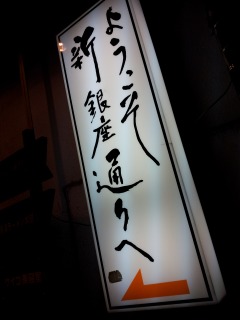 ようこそ
新銀座通りへ